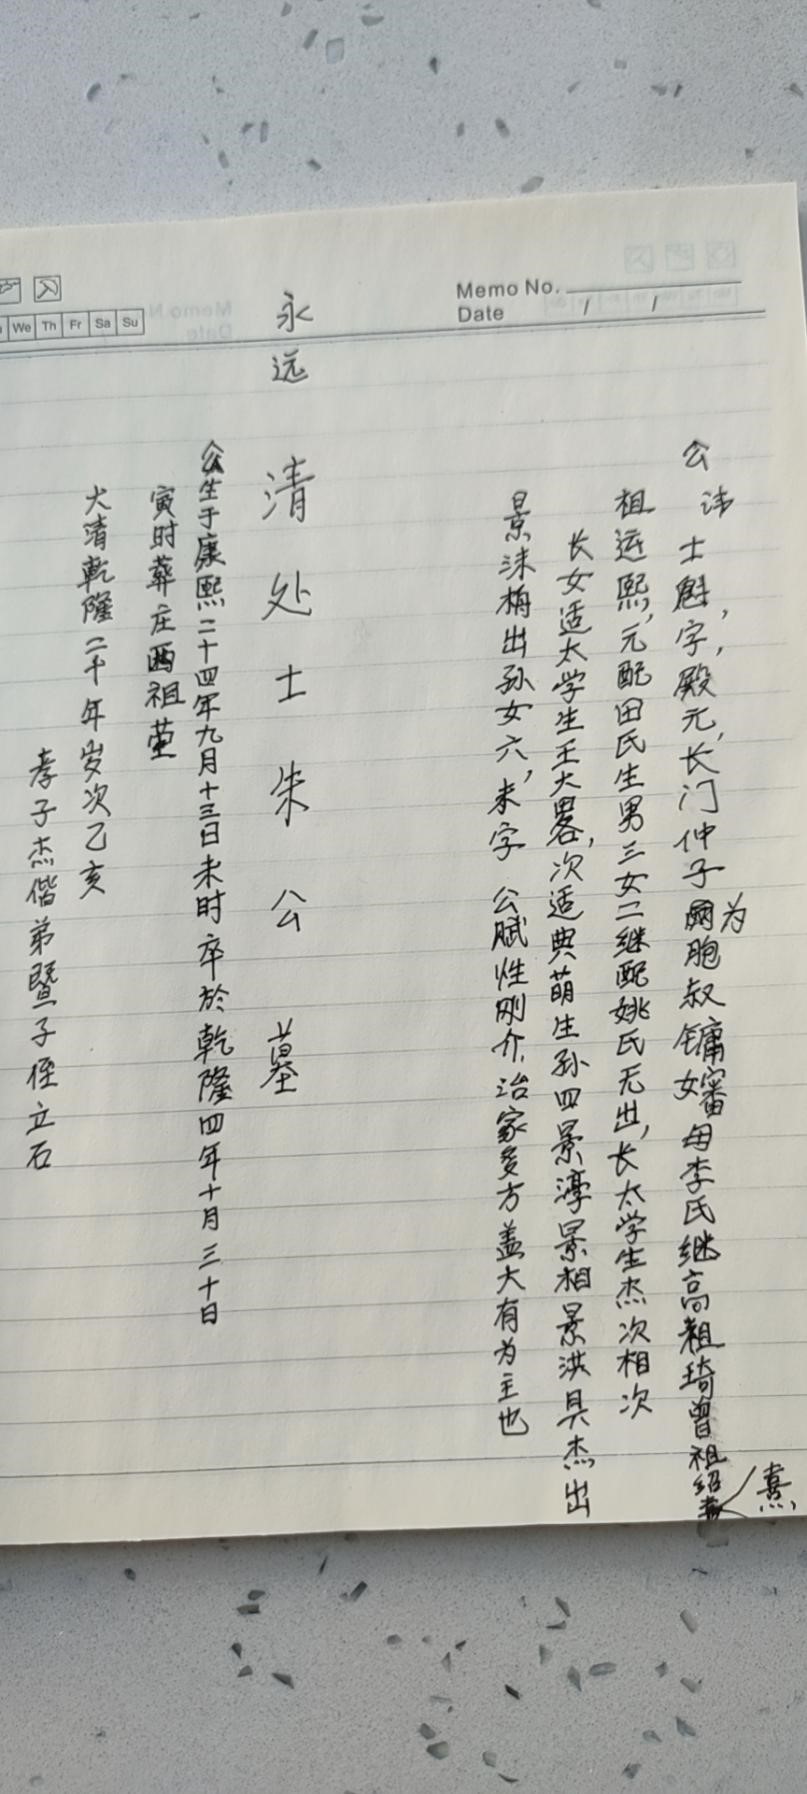 Memo No.
Date / /
We Th Fr Sa Su
公讳士魁,字,殿元,长门仲子为胞叔镛 母李氏继高祖琦曾祖绍熹
祖运熙,元配田氏生男三女二继配姚氏无出,长太学生杰次相次
长女适太学生王大畧,次适典萌生孙四景淳景相景洪具杰出
景沫梅出孙女六,未字 公赋性刚介,治家多方盖大有为主也
永远 清处士朱公墓
公生于康熙二十四年九月十三日未时卒於乾隆四年十月三十日
寅时葬庄西祖茔
大清乾隆二十年岁次乙亥
孝子杰偕弟暨子侄立石